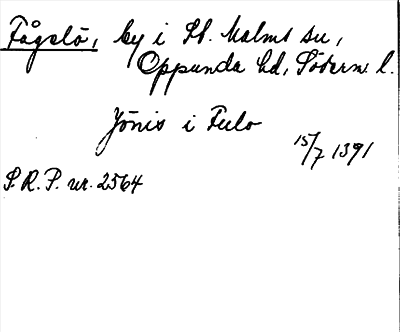 Fågelö, by i St. Malms sn,
Oppunda hd, Söderm. l.
Jönis i Fulo
15/7 1391
S.R.P. nr. 2564